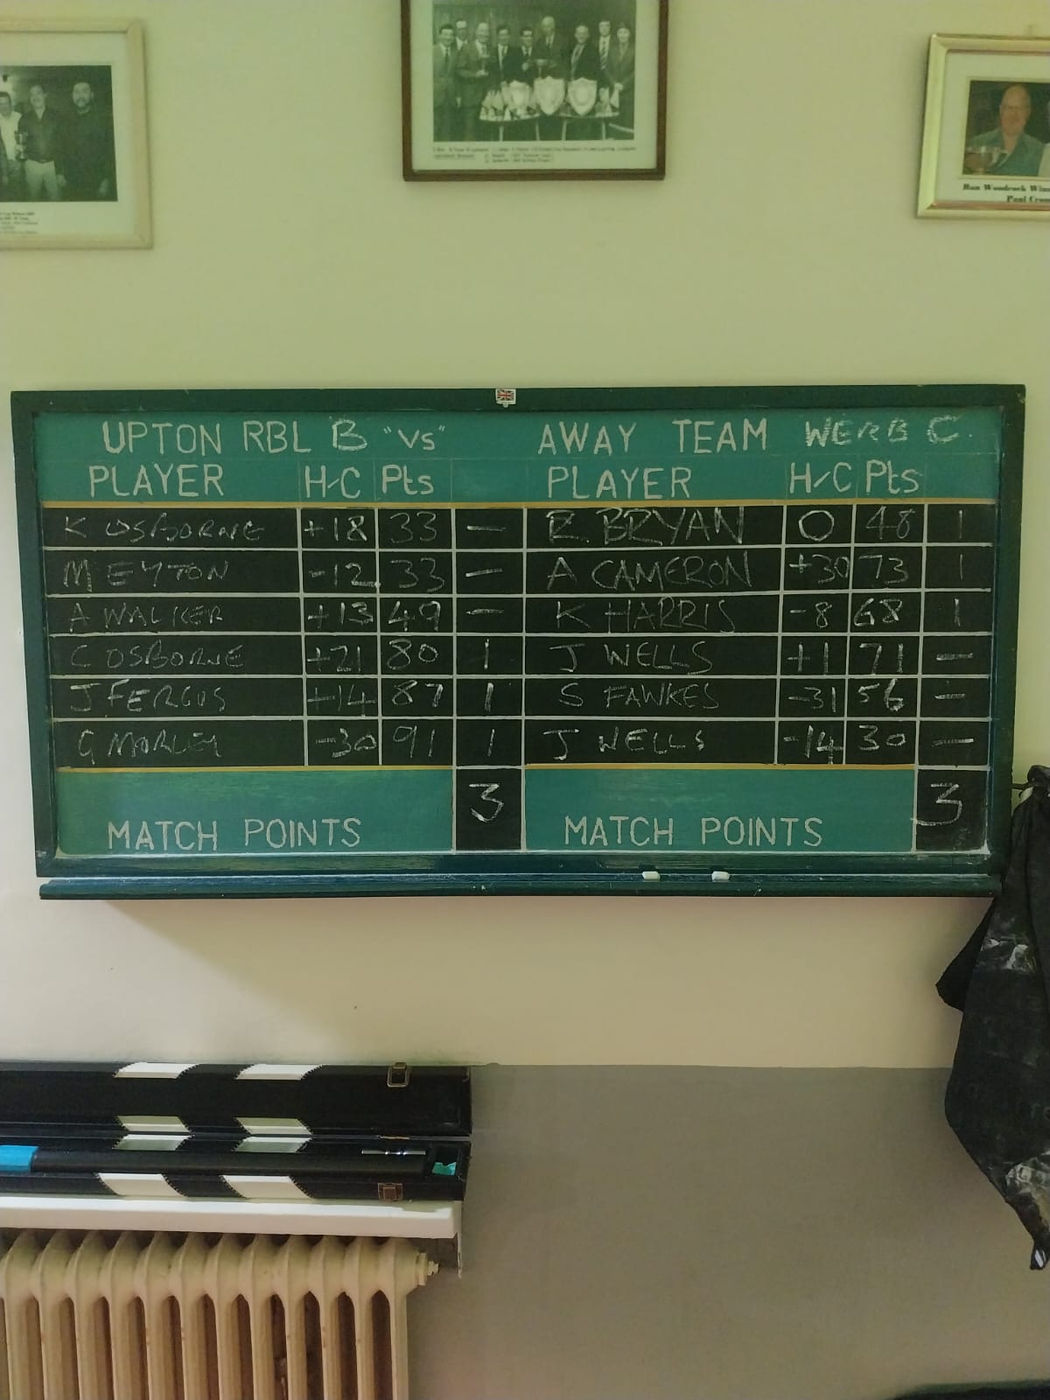 Ron Woodcock
Paul
UPTON RBL B "VS" AWAY TEAM WERB C
PLAYER H/C Pts PLAYER H/C Pts
K OSBORNE +18 33 — R. BRYAN 0 48 1
M EYTON -12 33 — A CAMERON +30 73 1
A WALKER +13 49 — K HARRIS -8 68 1
C OSBORNE +21 80 1 J WELLS +1 71 —
J FERGUS +14 87 1 S FAWKES -31 56 —
G MORLEY -30 91 1 J WELLS -14 30 —
MATCH POINTS 3 MATCH POINTS 3